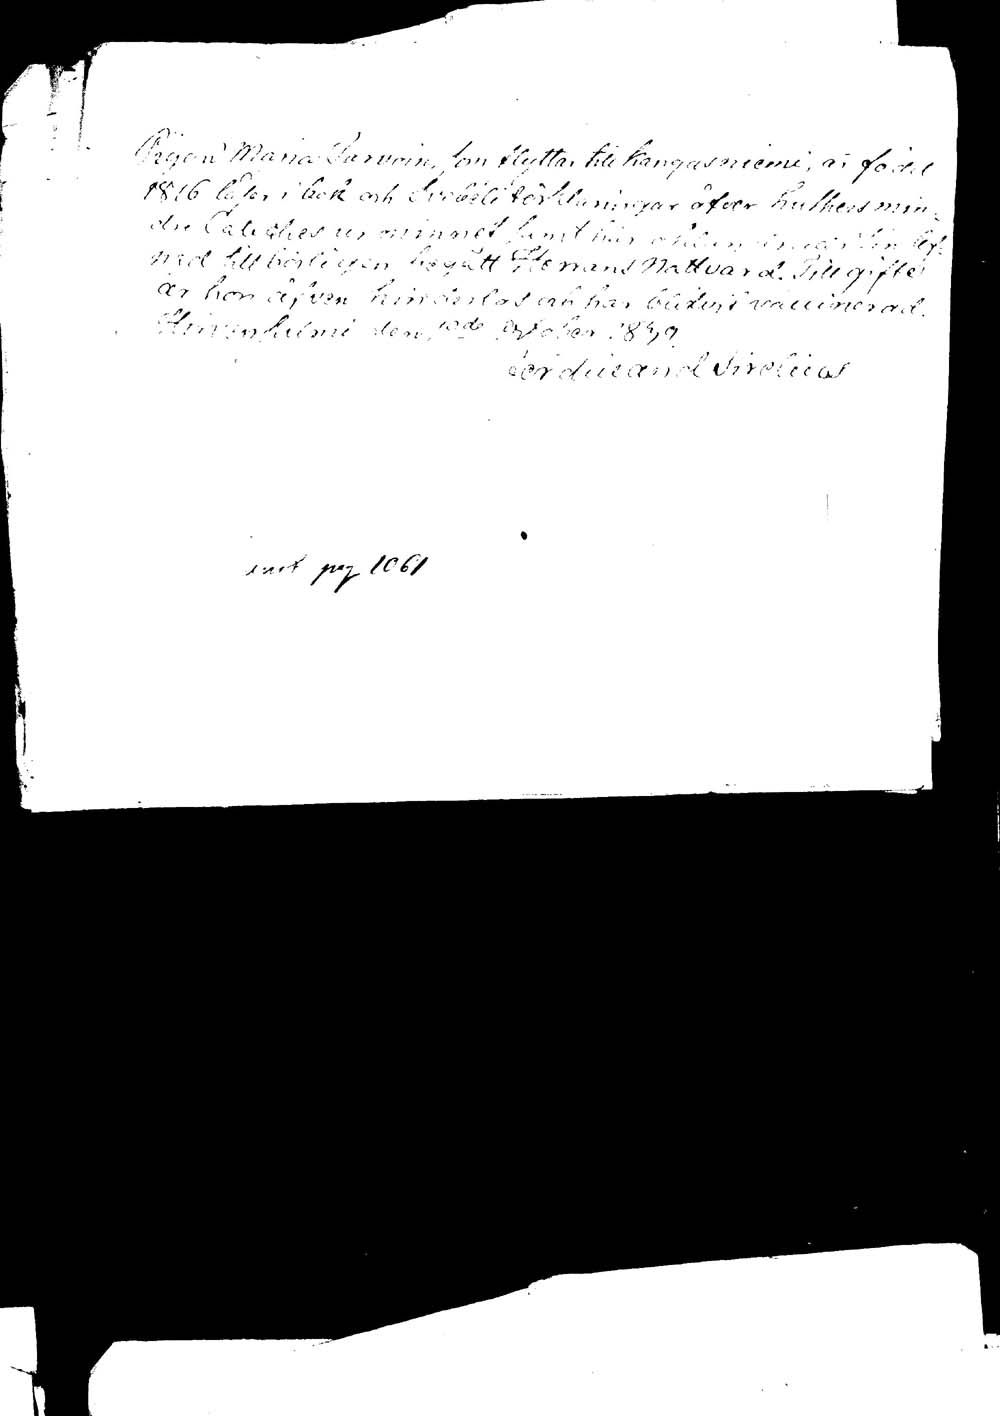 Pigan Maria Turvain, som flyttar till Kangasniemi, är född
1816 läser i bok och Svebelii förklaringar öfver Lutheri min-
dre Cateches ur minnet samt har under sin lef-
nad tillbörligen begått Herrans Nattvard. Till gifte
är hon äfven hinderlös och har blifvit vaccinerad.
Hirvensalmi den October
Ferdinand Sirelius
pag 1061